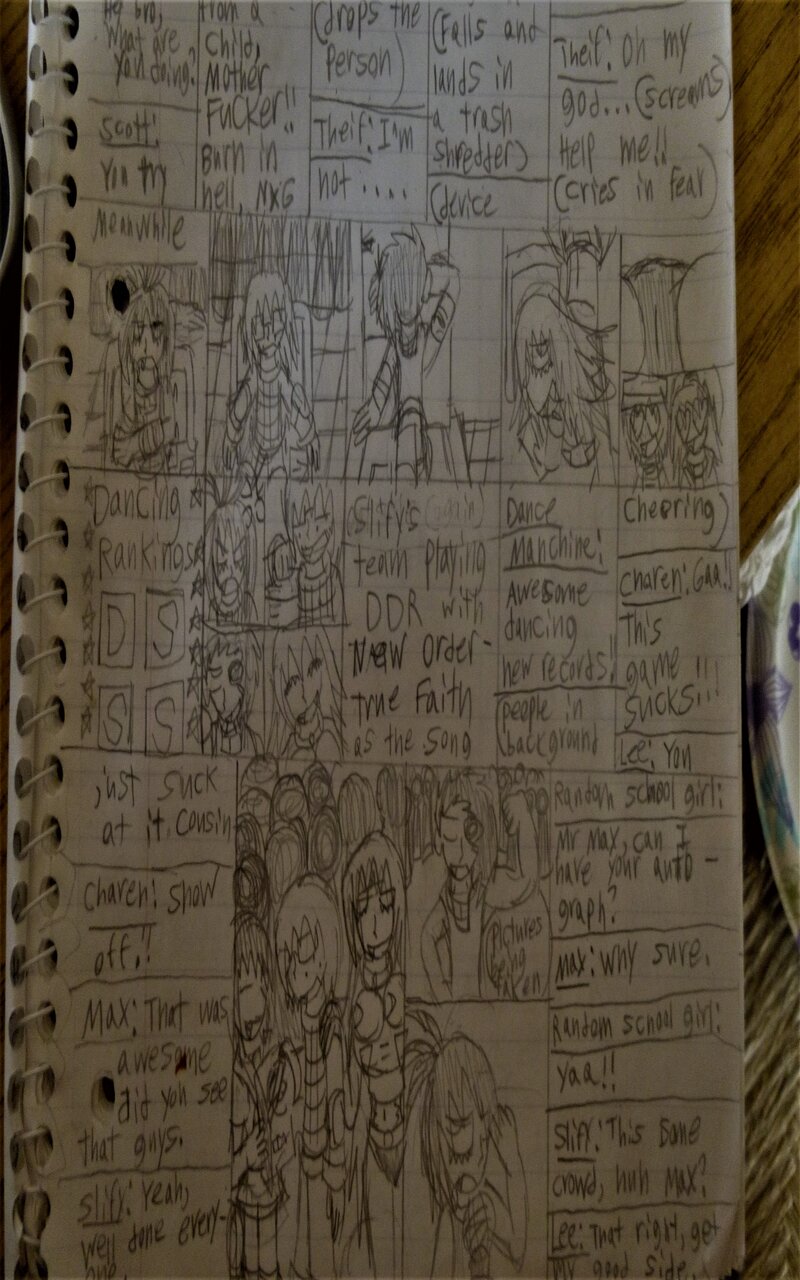 Hey bro,
What are
you doing?
Scott:
You try
from a
child,
Mother
FUCKER!!
Burn in
hell, NXG
(drops the
person)
Theif: I'm
not ....
(Falls and
lands in
a trash
shredder)
(device
Theif: Oh my
god... (screams)
Help me!!
(cries in fear)
Meanwhile
Dancing
Rankings
D S
S S
(Slify's
team playing
DDR with
New Order-
true Faith
as the song
Dance
Manchine:
Awesome
dancing
new records!
(people in
background
Cheering)
Charen: Gaa!
This
game !!!
SUCKS!!!
Lee: You
just suck
at it, cousin
Charen: show
off!!
Max: That was
awesome
did you see
that guys.
Slify: Yeah,
well done every-
one.
pictures
being
taken
Random school girl:
Mr Max, can I
have your auto-
graph?
Max: why sure.
Random school girl:
yaa!!
Slify: This some
crowd, huh Max?
Lee: That right, get
my good side.